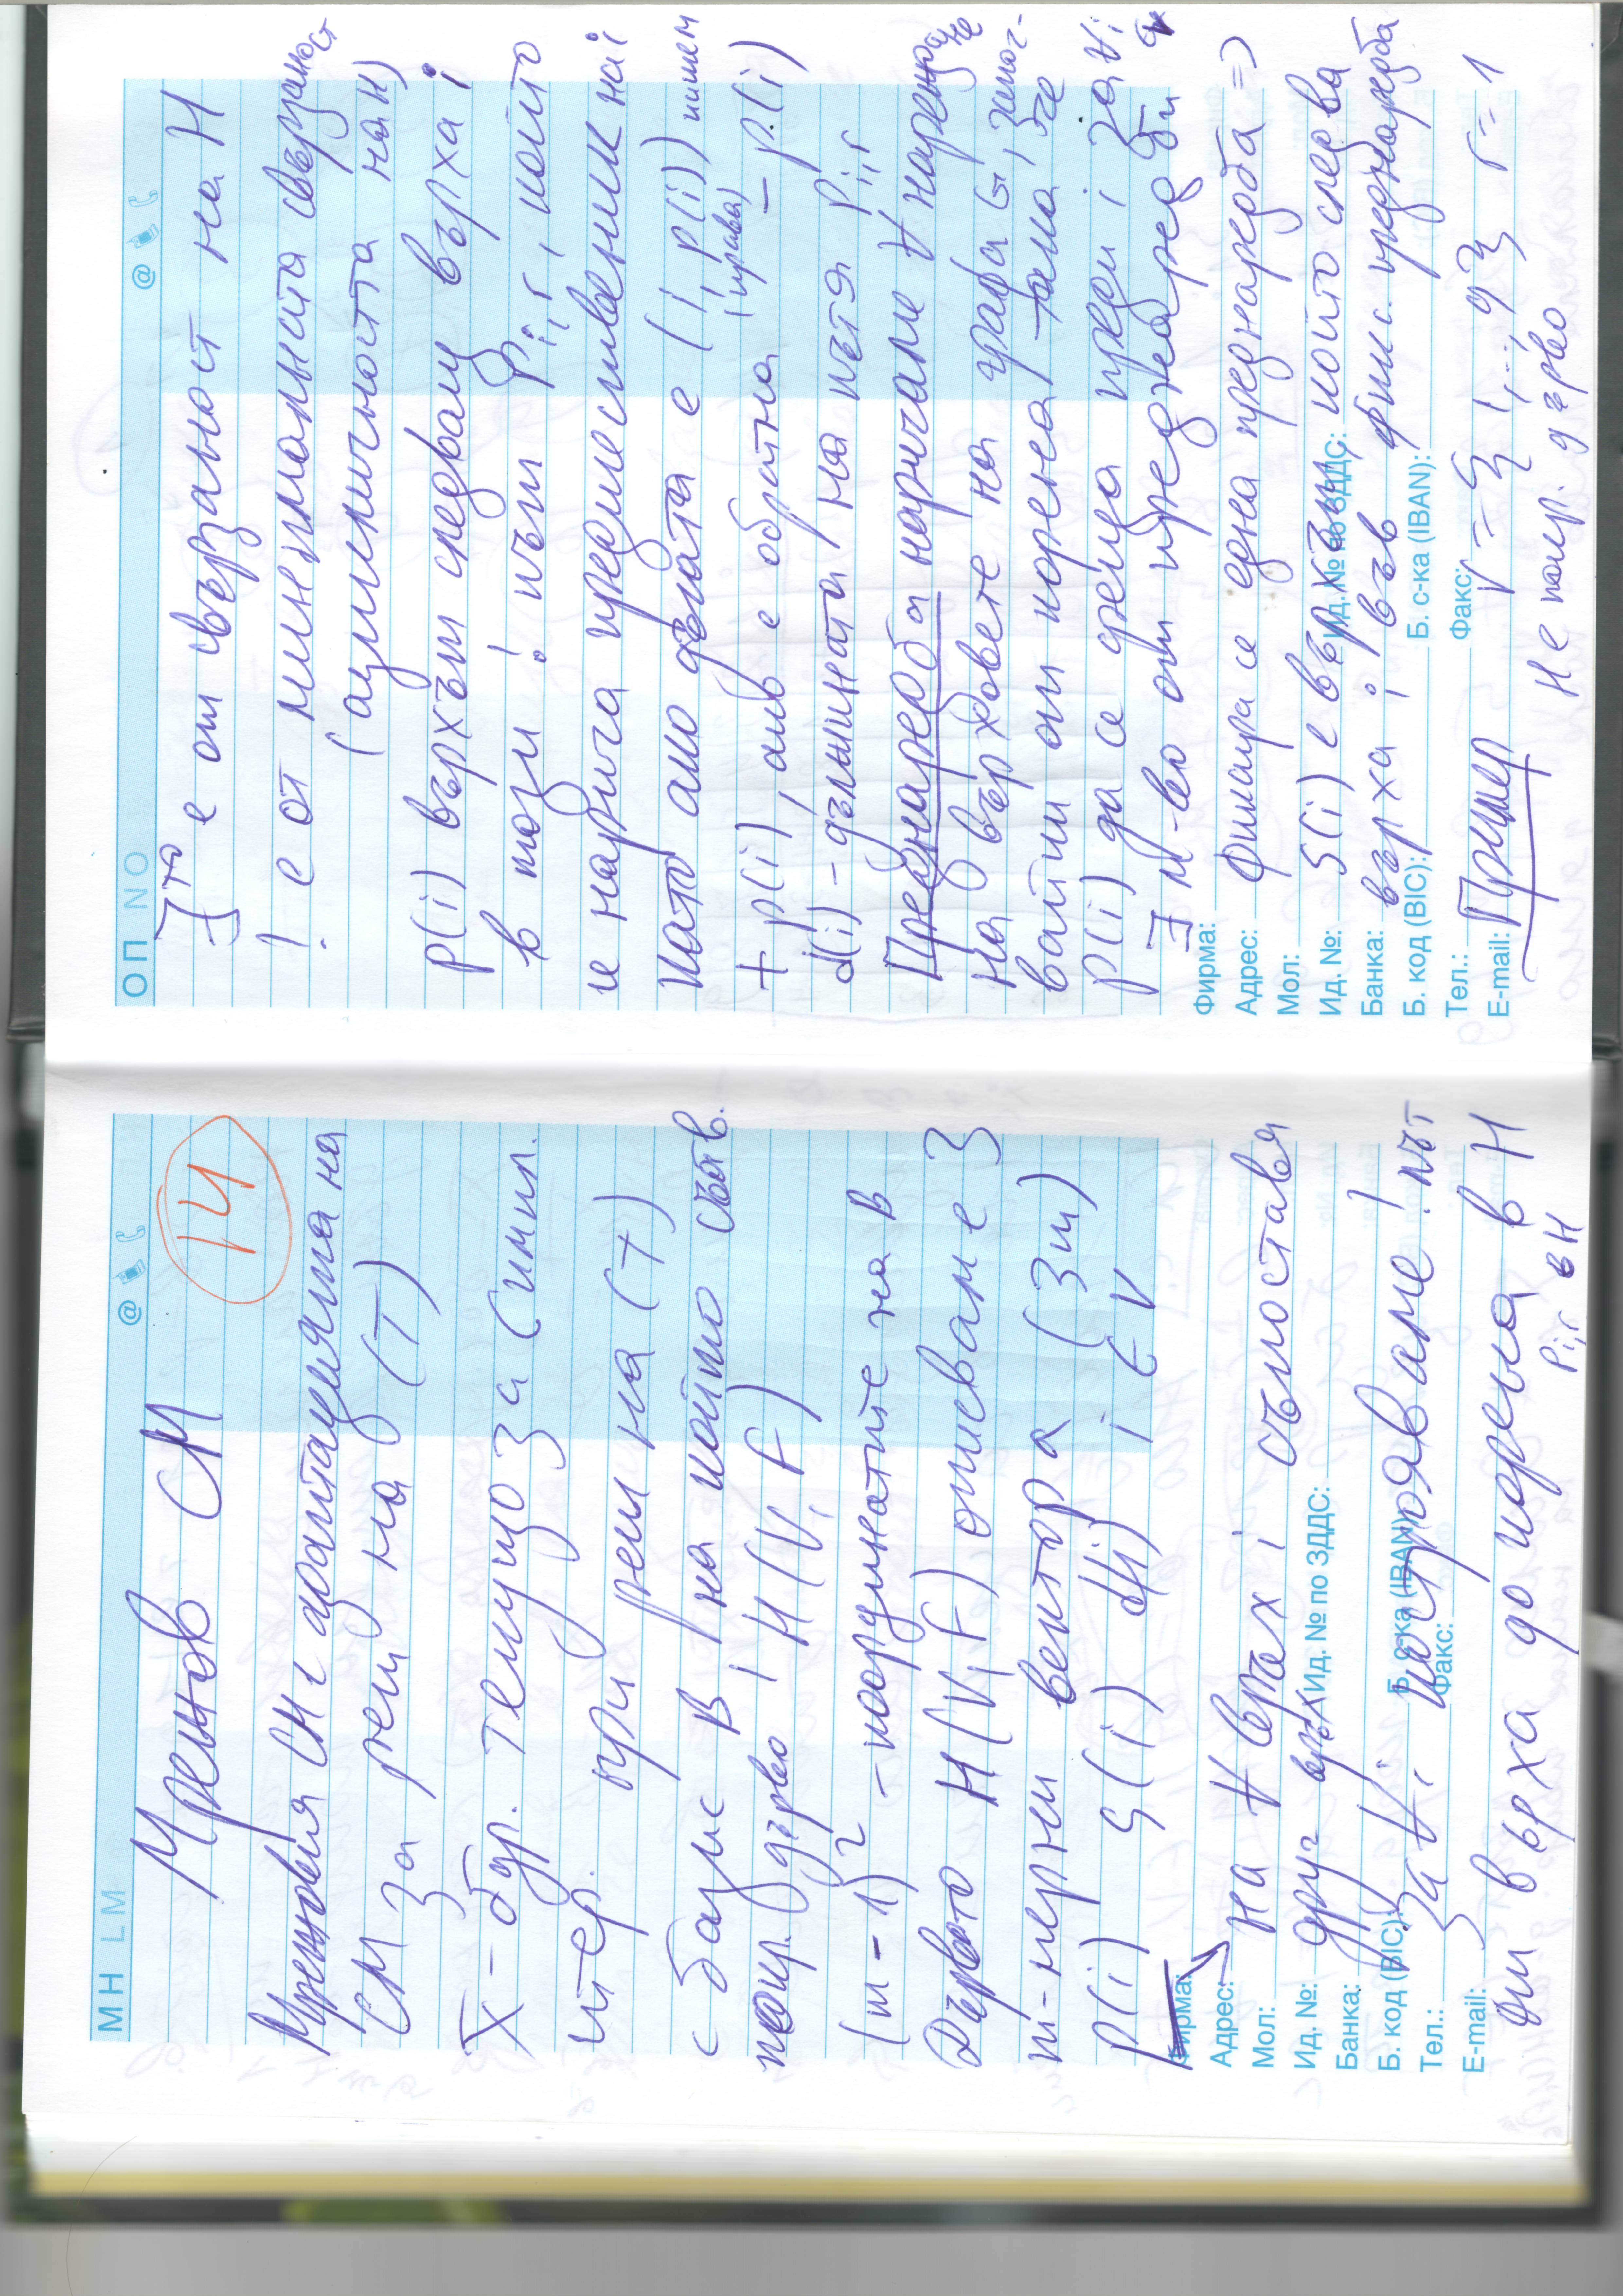 MH LM
Мрежов СМ
14
Мрежовия СМ е адаптацията на
СМ за реш на (Т)
X – б.д.р. текущо за (симпл.
итер. при реш на (Т)
с базис B, на който съотв.
покр. дърво, H(V, F)
(m-1)² – координатите на B
Дървото H(V, F) описваме с 3
m-мерни вектора (3m)
p(i) s(i) d(i) i ∈ V
Фирма:
Адрес:
Мол:
Ид. №: Ид. № по ЗДДС:
Банка:
Б. код (BIC): Б. с-ка (IBAN):
Тел.: Факс:
E-mail:
на ∀ връх i съпоставя
друг връх
За ∀ i построяваме ! път
от върха до корена в H
Pi,r в H
ОП NO
∃ то е от свързаност на H
! е от минималната свързаност
(ацикличността на H)
p(i) върхът следващ върха i
в този ! път Pi,r, който
се нарича предшественик на i
като ако дъгата е (i, p(i)) пишем
(права)
+ p(i), ако е обратна – p(i)
d(i) – дължината на пътя Pi,r
Преднаредба наричаме ∀ нареждане
на върховете на графа G, започ-
ващи от корена, така че
p(i) да се среща преди i за ∀ i
∃ м-во от преднаредби
Фиксира се една преднаредба =>
s(i) е върхът, който следва
върха i във фикс. преднаредба
Фирма:
Адрес:
Мол:
Ид. №: Ид. № по ЗДДС:
Банка:
Б. код (BIC): Б. с-ка (IBAN):
Тел.: Факс:
E-mail:
Пример V = {1,..., 9} r = 1
Не покр. дърво